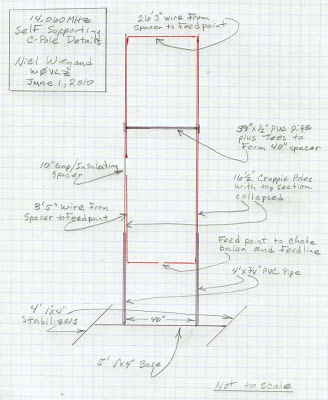 14.060 MHz
Self Supporting
C-Pole Details
Niel Weyand
WØVLZ
June 1, 2010
26'3" wire From
Spacer to Feedpoint
39"x½" PVC pipe
plus Tees to
Form 40" spacer
10" Gap/Insulating
Spacer
16'2' Crappie Poles
with top section
collapsed
8'5" Wire From
Spacer to Feedpoint
Feed point to Choke
balun and Feedline
4'x¾" PVC Pipe
4' 1x4"
Stabilizers
40"
5' 1x4" Base
Not to scale